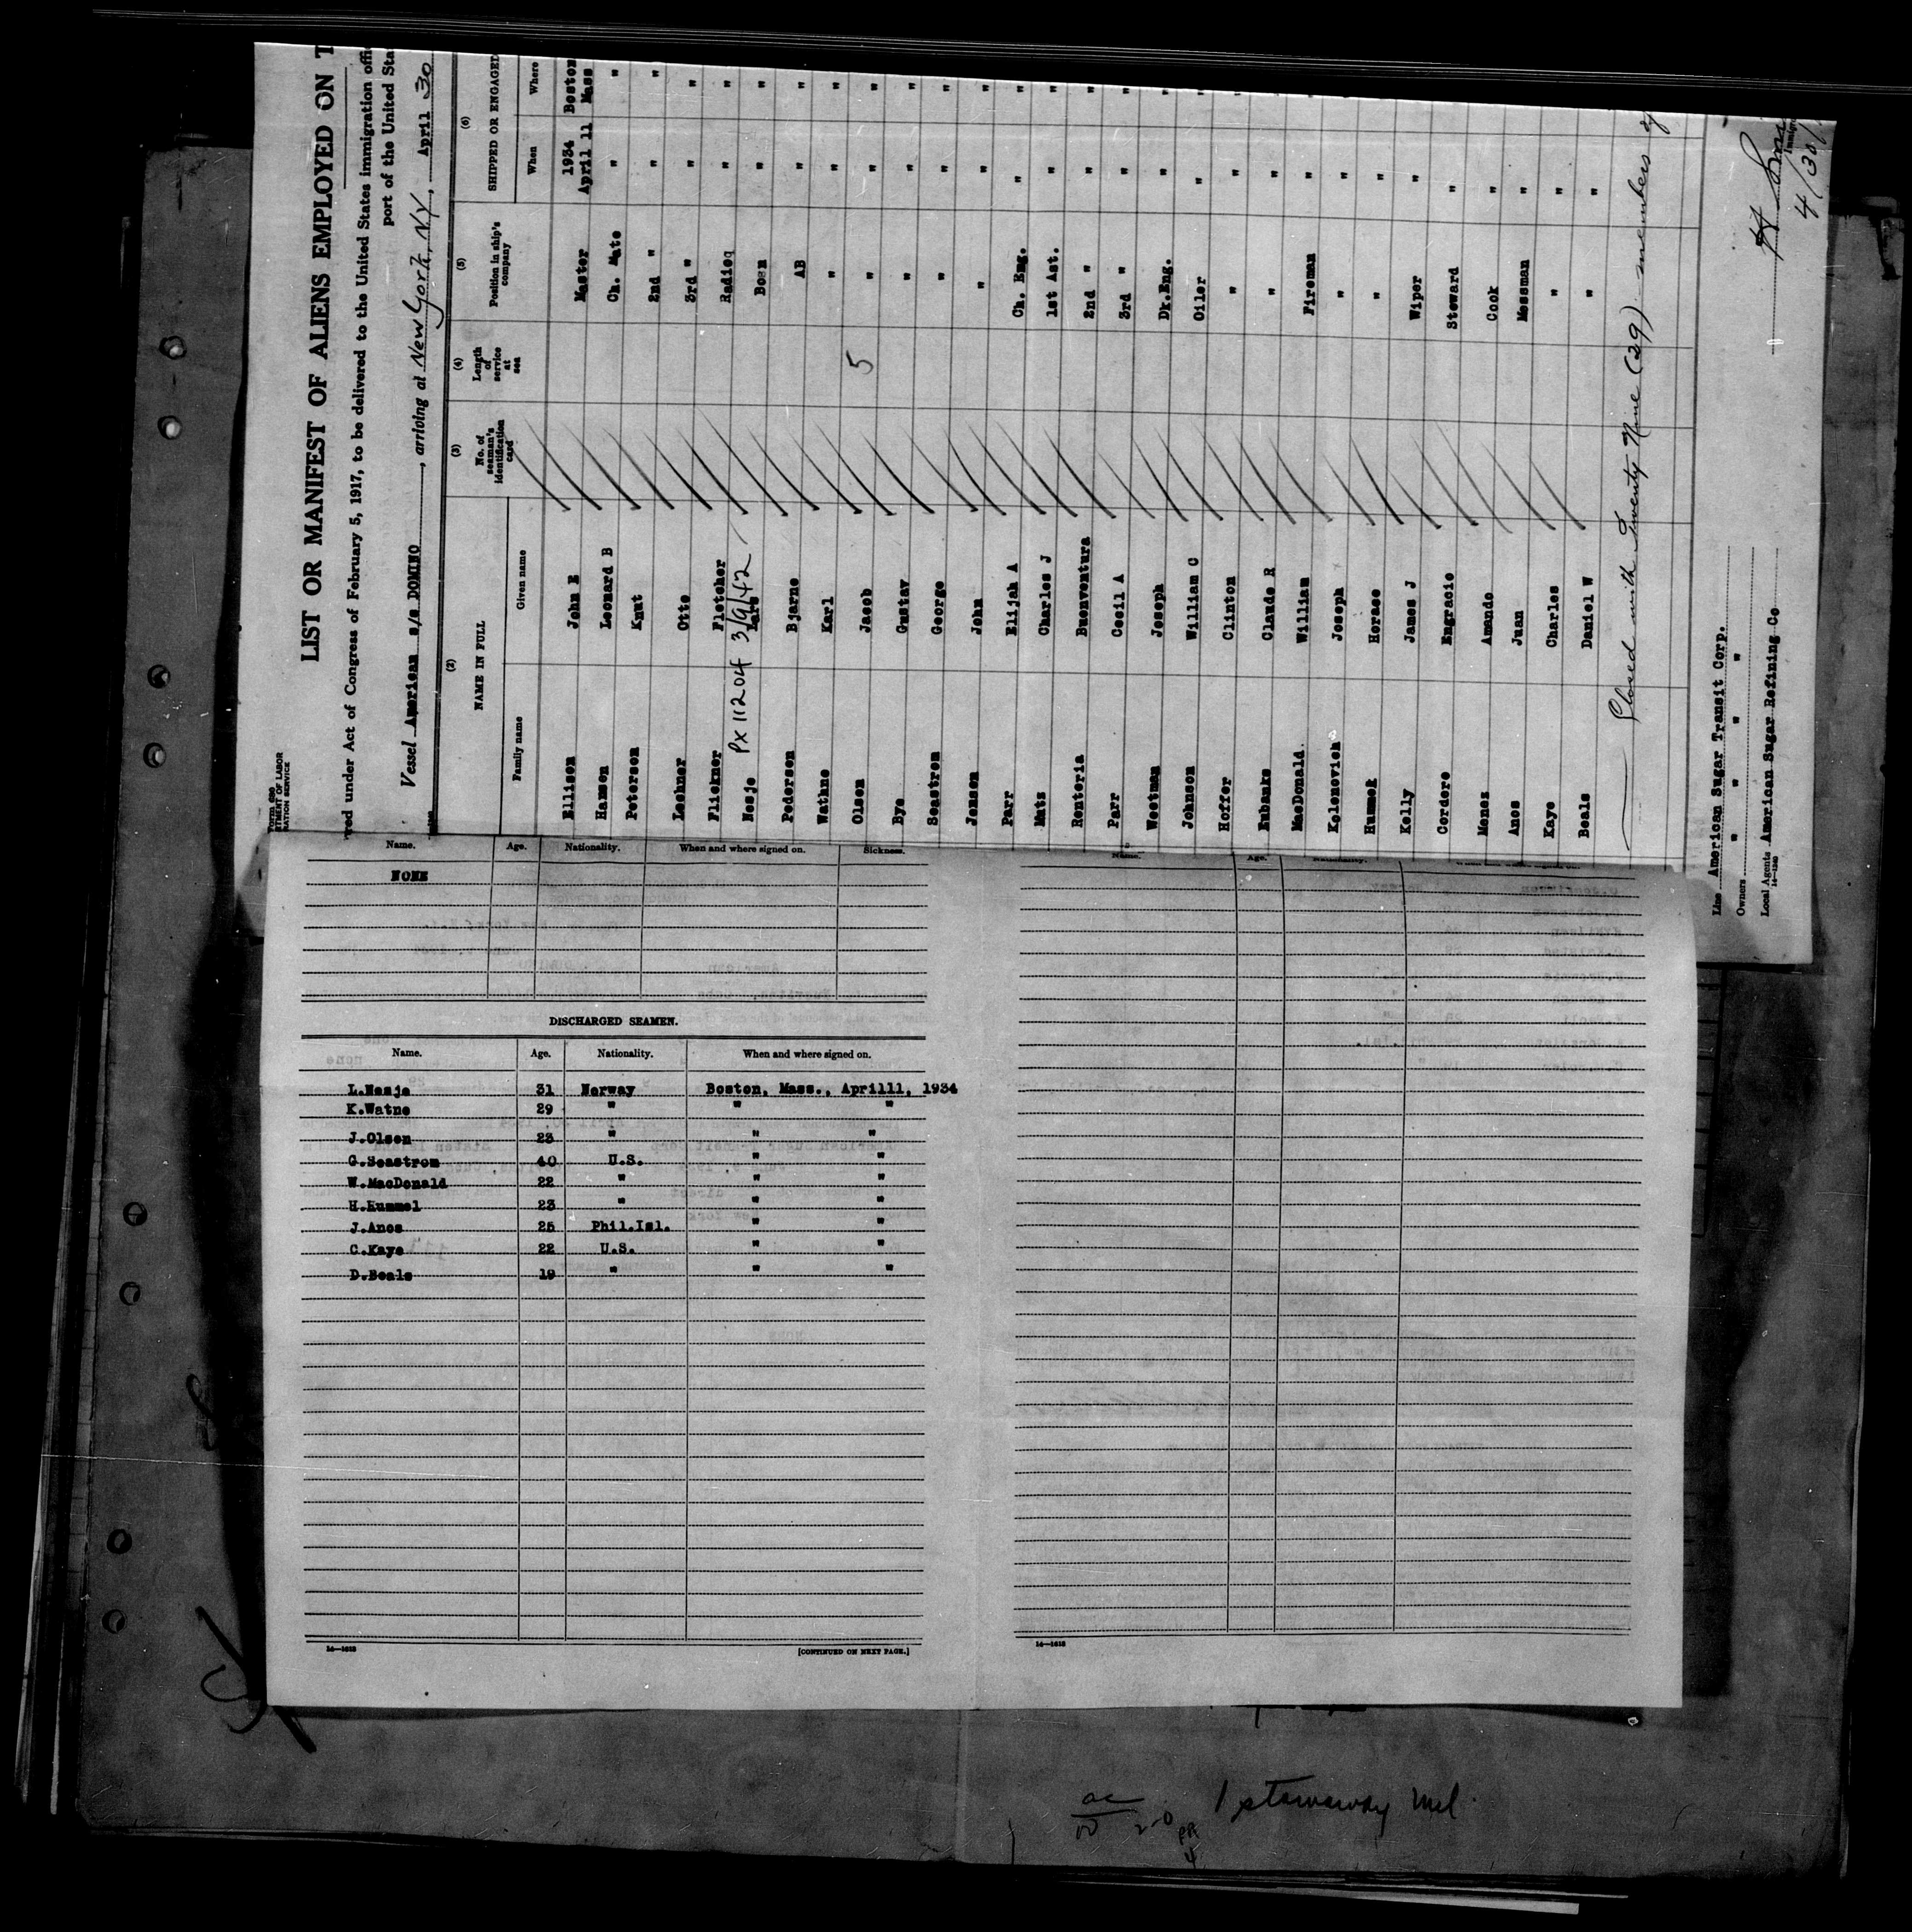 Form 680
LIST OR MANIFEST OF ALIENS EMPLOYED ON T
red under Act of Congress of February 5, 1917, to be delivered to the United States immigration offi
port of the United Sta
Vessel American s/s DOMINO, arriving at New York, N.Y., April 30
(2) (3) (4) (5) (6)
NAME IN FULL No. of seaman's identification card Length of service at sea Position in ship's company SHIPPED OR ENGAGED
Family name Given name When Where
Ellisen John E Master 1934 April 11 Boston Mass
Hansen Leonard B Ch. Mate " "
Petersen Knut 2nd " " "
Lechner Otto 3rd " " "
Fliekner Fletcher Radioq " "
Nesje PX 11204 3/9/42 Lars Bosn " "
Pedersen Bjarne AB " "
Wathne Karl " " "
Olsen Jacob 5 " " "
Bye Gustav " " "
Seastrom George " " "
Jensen John " " "
Parr Elijah A Ch. Eng. " "
Matz Charles J 1st Ast. " "
Renteria Buenventura 2nd " " "
Parr Cecil A 3rd " " "
Weetman Joseph Dk.Eng. " "
Johnson William C Oiler " "
Hoffer Clinton " " "
Eubanks Claude R " " "
MacDonald. William Fireman " "
Kolenovich Joseph " "
Hummek Horece " "
Kelly James J Wiper "
Cordero Engracio Steward "
Menez Amando Cook "
Anos Juan Messman "
Kaye Charles " "
Beals Daniel W " "
Closed with Twenty Nine (29) members of
Line American Sugar Transit Corp.
Owners " " " "
Local Agents American Sugar Refining Co
14-1240
4/30/
Name. Age. Nationality. When and where signed on. Sickness.
NONE
DISCHARGED SEAMEN.
Name. Age. Nationality. When and where signed on.
L.Nesje 31 Norway Boston, Mass., April11, 1934
K.Watne 29 " " "
J.Olsen 23 " " "
G.Seastrom 40 U.S. " "
W.MacDonald 22 " " "
H.Hummel 23 " " "
J.Anos 25 Phil.Isl. " "
C.Kaye 22 U.S. " "
D.Beals 19 " " "
14—1618
[CONTINUED ON NEXT PAGE.]
Name. Age. Nationality.
14—1618
1 stowaway